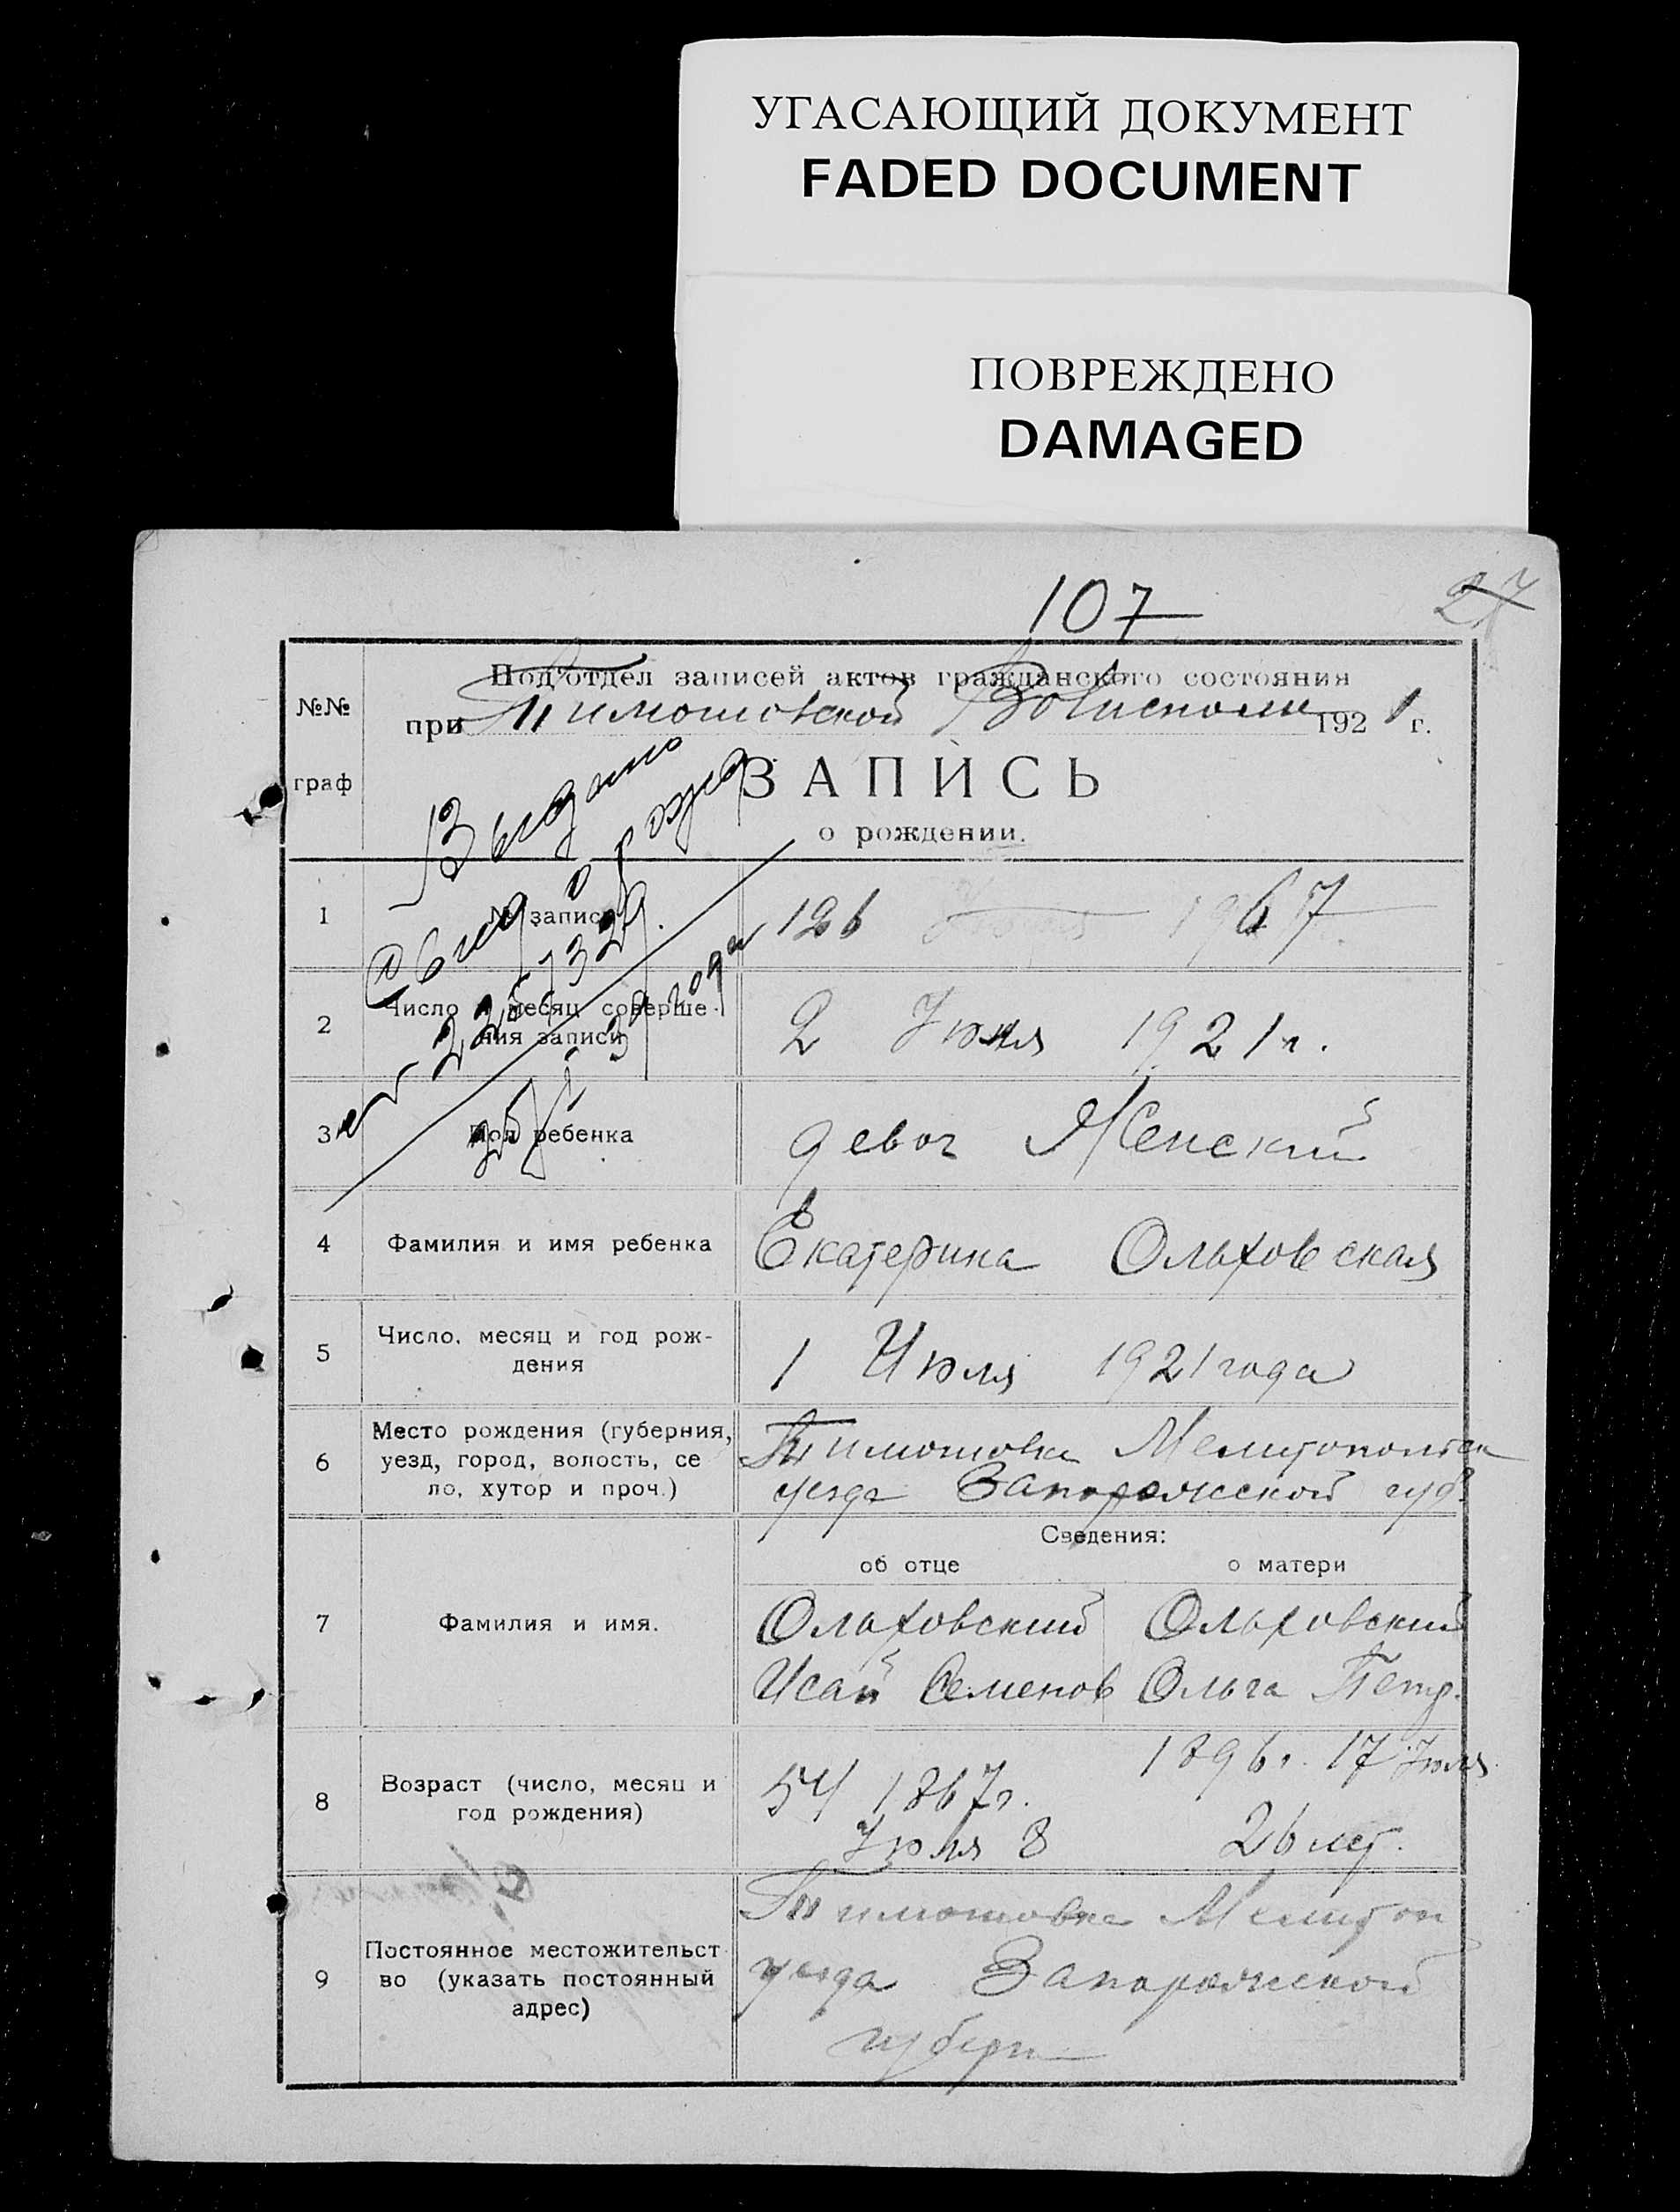 УГАСАЮЩИЙ ДОКУМЕНТ
FADED DOCUMENT
ПОВРЕЖДЕНО
DAMAGED
107
27
№№ граф
Под'отдел записей актов гражданского состояния
при Тимошовской Волисполк 1921 г.
ЗАПИСЬ
о рождении.
Выдано
Свид о рожд
1 № записи 126 67
2 Число и месяц соверше-
ния записи
2 Июля 1921 г.
3 Пол ребенка девоч Женский
4 Фамилия и имя ребенка Екатерина Ольховская
5 Число, месяц и год рож-
дения
1 Июля 1921 года
6 Место рождения (губерния,
уезд, город, волость, се
ло, хутор и проч.)
Тимошовка Мелитопольск
уезда Запорожской губ.
Сведения:
об отце о матери
7 Фамилия и имя.
Ольховский Ольховский
Исай Семенов Ольга Петр.
8 Возраст (число, месяц и
год рождения)
54 1867 г.
Июля 8
1896 г. 17 Июля
26 лет.
9 Постоянное местожительст
во (указать постоянный
адрес)
Тимошовка Мелитоп
уезда Запорожской
губерн